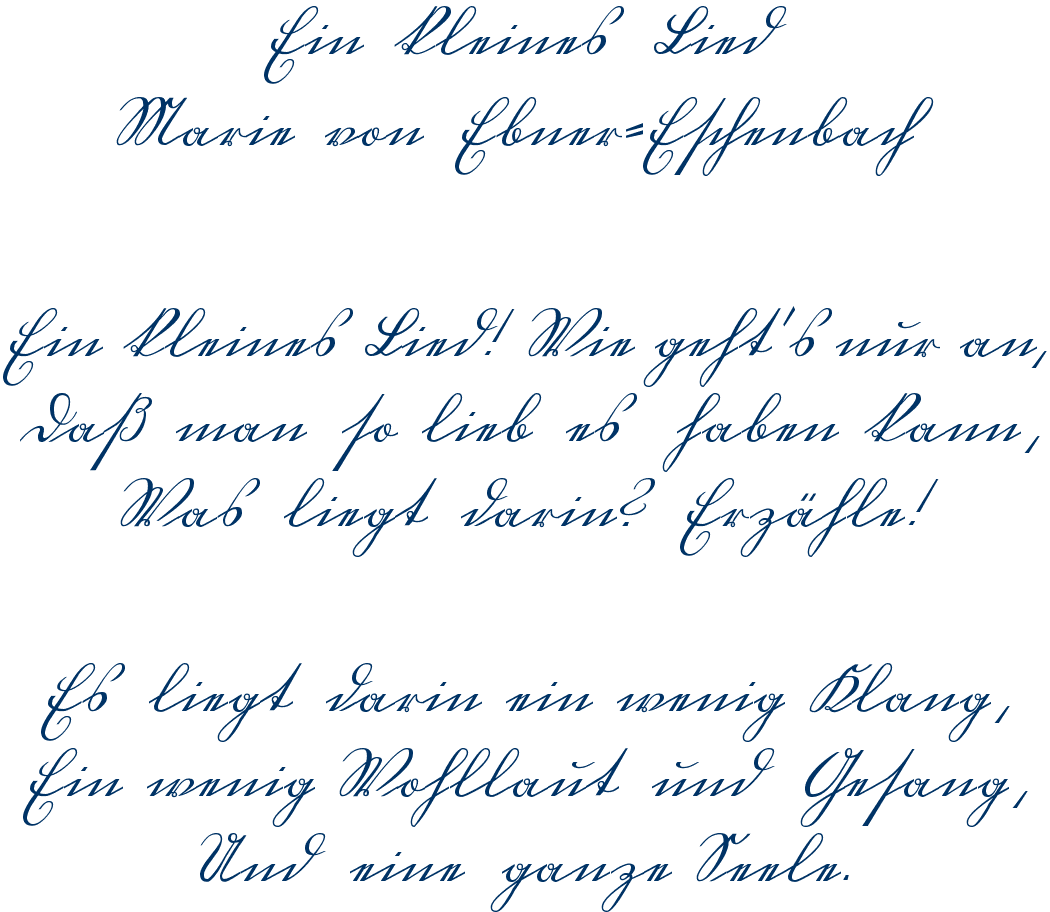 Ein kleines Lied
Marie von Ebner=Eschenbach
Ein kleines Lied! Wie geht's nur an,
Daß man so lieb es haben kann,
Was liegt darin? Erzähle!
Es liegt darin ein wenig Klang,
Ein wenig Wohllaut und Gesang,
Und eine ganze Seele.